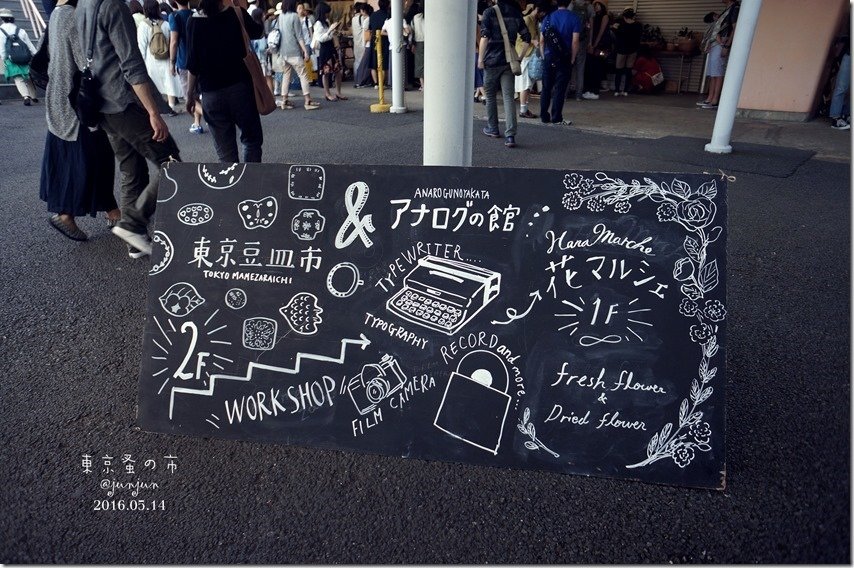 東京豆皿市
TOKYO MAMEZARAICHI
2F
WORKSHOP
&
ANAROGUNOYAKATA
アナログの館
TYPEWRITER....
TYPOGRAPHY
FILM CAMERA
RECORD and more...
Hana Marche
花マルシェ
1F
fresh flower
&
Dried flower
東京蚤の市
@junjun
2016.05.14